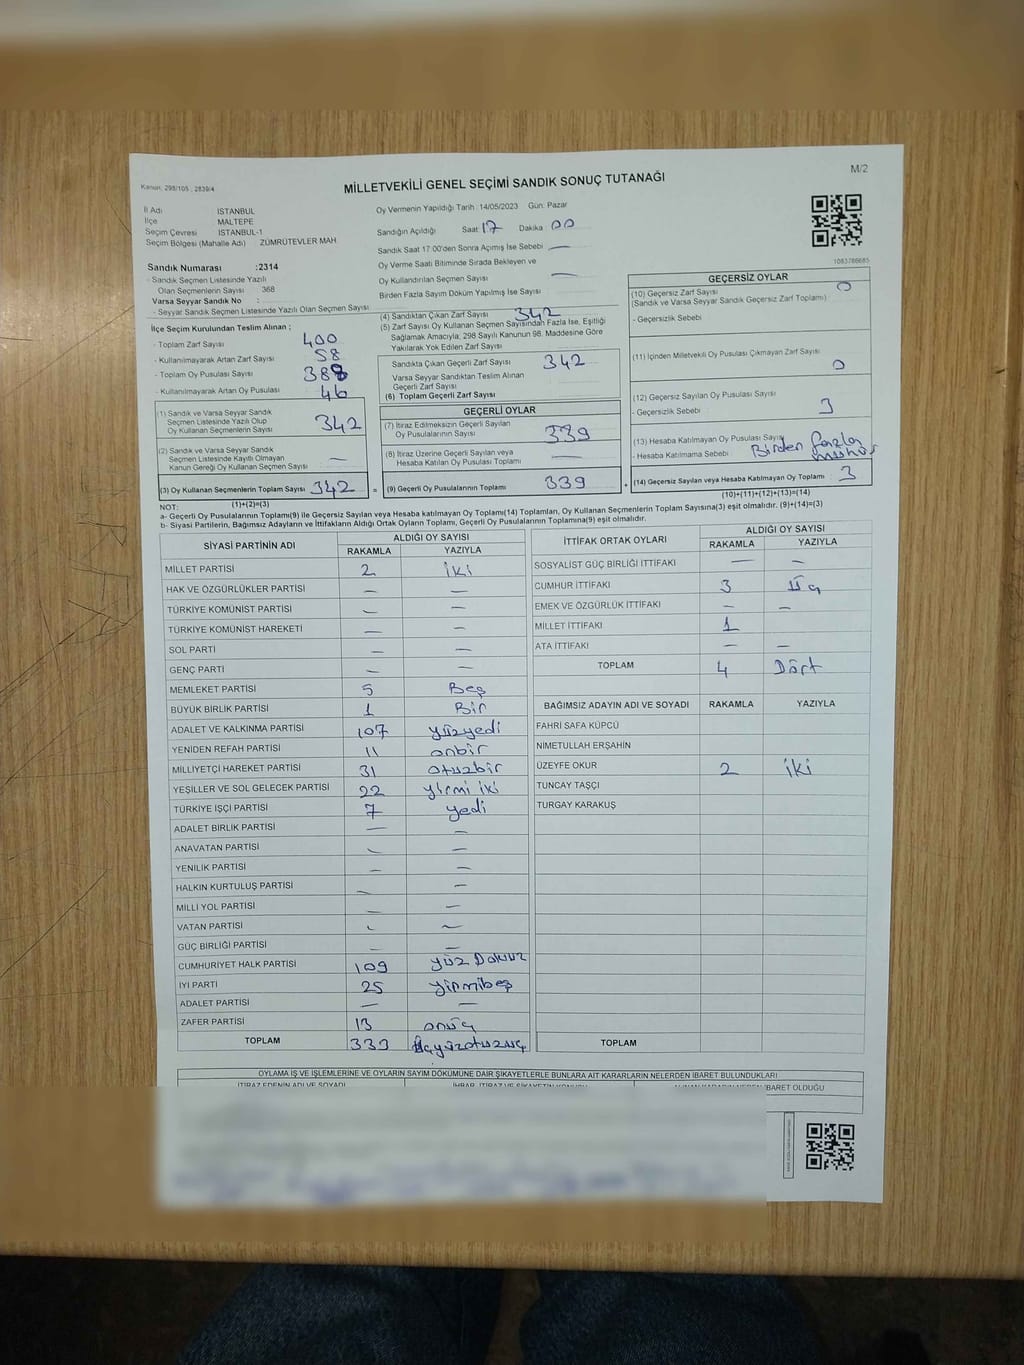 M/2
Kanun: 298/105 ; 2839/4
MİLLETVEKİLİ GENEL SEÇİMİ SANDIK SONUÇ TUTANAĞI
İl Adı İSTANBUL
İlçe MALTEPE
Seçim Çevresi İSTANBUL-1
Seçim Bölgesi (Mahalle Adı) ZÜMRÜTEVLER MAH
Sandık Numarası :2314
- Sandık Seçmen Listesinde Yazılı
Olan Seçmenlerin Sayısı 368
Varsa Seyyar Sandık No :
- Seyyar Sandık Seçmen Listesinde Yazılı Olan Seçmen Sayısı
İlçe Seçim Kurulundan Teslim Alınan ;
- Toplam Zarf Sayısı 400
- Kullanılmayarak Artan Zarf Sayısı 58
- Toplam Oy Pusulası Sayısı 388
- Kullanılmayarak Artan Oy Pusulası 46
(1) Sandık ve Varsa Seyyar Sandık
Seçmen Listesinde Yazılı Olup
Oy Kullanan Seçmenlerin Sayısı 342
(2) Sandık ve Varsa Seyyar Sandık
Seçmen Listesinde Kayıtlı Olmayan
Kanun Gereği Oy Kullanan Seçmen Sayısı —
(3) Oy Kullanan Seçmenlerin Toplam Sayısı 342 =
(1)+(2)=(3)
Oy Vermenin Yapıldığı Tarih : 14/05/2023 Gün: Pazar
Sandığın Açıldığı Saat 17 Dakika 00
Sandık Saat 17:00'den Sonra Açımış İse Sebebi —
Oy Verme Saati Bitiminde Sırada Bekleyen ve
Oy Kullandırılan Seçmen Sayısı —
Birden Fazla Sayım Döküm Yapılmış İse Sayısı
(4) Sandıktan Çıkan Zarf Sayısı 342
(5) Zarf Sayısı Oy Kullanan Seçmen Sayısından Fazla İse, Eşitliği
Sağlamak Amacıyla; 298 Sayılı Kanunun 98. Maddesine Göre
Yakılarak Yok Edilen Zarf Sayısı
Sandıkta Çıkan Geçerli Zarf Sayısı 342
Varsa Seyyar Sandıktan Teslim Alınan
Geçerli Zarf Sayısı
(6) Toplam Geçerli Zarf Sayısı
GEÇERLİ OYLAR
(7) İtiraz Edilmeksizin Geçerli Sayılan
Oy Pusulalarının Sayısı 339
(8) İtiraz Üzerine Geçerli Sayılan veya
Hesaba Katılan Oy Pusulası Toplamı —
(9) Geçerli Oy Pusulalarının Toplamı 339 +
1083786685
GEÇERSİZ OYLAR
(10) Geçersiz Zarf Sayısı 0
(Sandık ve Varsa Seyyar Sandık Geçersiz Zarf Toplamı)
- Geçersizlik Sebebi :
(11) İçinden Milletvekili Oy Pusulası Çıkmayan Zarf Sayısı
0
(12) Geçersiz Sayılan Oy Pusulası Sayısı
- Geçersizlik Sebebi 3
(13) Hesaba Katılmayan Oy Pusulası Sayısı
- Hesaba Katılmama Sebebi : Birden fazla mühür
(14) Geçersiz Sayılan veya Hesaba Katılmayan Oy Toplamı : 3
(10)+(11)+(12)+(13)=(14)
NOT:
a- Geçerli Oy Pusulalarının Toplamı(9) ile Geçersiz Sayılan veya Hesaba katılmayan Oy Toplamı(14) Toplamları, Oy Kullanan Seçmenlerin Toplam Sayısına(3) eşit olmalıdır. (9)+(14)=(3)
b- Siyasi Partilerin, Bağımsız Adayların ve İttifakların Aldığı Ortak Oyların Toplamı, Geçerli Oy Pusulalarının Toplamına(9) eşit olmalıdır.
SİYASİ PARTİNİN ADI ALDIĞI OY SAYISI
RAKAMLA YAZIYLA
MİLLET PARTİSİ 2 iki
HAK VE ÖZGÜRLÜKLER PARTİSİ — —
TÜRKİYE KOMÜNİST PARTİSİ — —
TÜRKİYE KOMÜNİST HAREKETİ — —
SOL PARTİ — —
GENÇ PARTİ — —
MEMLEKET PARTİSİ 5 Beş
BÜYÜK BİRLİK PARTİSİ 1 Bir
ADALET VE KALKINMA PARTİSİ 107 yüzyedi
YENİDEN REFAH PARTİSİ 11 onbir
MİLLİYETÇİ HAREKET PARTİSİ 31 otuzbir
YEŞİLLER VE SOL GELECEK PARTİSİ 22 yirmi iki
TÜRKİYE İŞÇİ PARTİSİ 7 yedi
ADALET BİRLİK PARTİSİ — —
ANAVATAN PARTİSİ — —
YENİLİK PARTİSİ — —
HALKIN KURTULUŞ PARTİSİ — —
MİLLİ YOL PARTİSİ — —
VATAN PARTİSİ — —
GÜÇ BİRLİĞİ PARTİSİ — —
CUMHURİYET HALK PARTİSİ 109 yüz Dokuz
İYİ PARTİ 25 yirmibeş
ADALET PARTİSİ — —
ZAFER PARTİSİ 13 onüç
TOPLAM 333 üçyüzotuzüç
İTTİFAK ORTAK OYLARI ALDIĞI OY SAYISI
RAKAMLA YAZIYLA
SOSYALİST GÜÇ BİRLİĞİ İTTİFAKI — —
CUMHUR İTTİFAKI 3 Üç
EMEK VE ÖZGÜRLÜK İTTİFAKI — —
MİLLET İTTİFAKI 1
ATA İTTİFAKI — —
TOPLAM 4 Dört
BAĞIMSIZ ADAYIN ADI VE SOYADI RAKAMLA YAZIYLA
FAHRİ SAFA KÜPCÜ
NİMETULLAH ERŞAHİN
ÜZEYFE OKUR 2 iki
TUNCAY TAŞÇI
TURGAY KARAKUŞ
TOPLAM
OYLAMA İŞ VE İŞLEMLERİNE VE OYLARIN SAYIM DÖKÜMÜNE DAİR ŞİKAYETLERLE BUNLARA AİT KARARLARIN NELERDEN İBARET BULUNDUKLARI
İTİRAZ EDENİN ADI VE SOYADI İHBAR, İTİRAZ VE ŞİKAYETİN KONUSU ALINAN KARARIN NEDEN İBARET OLDUĞU